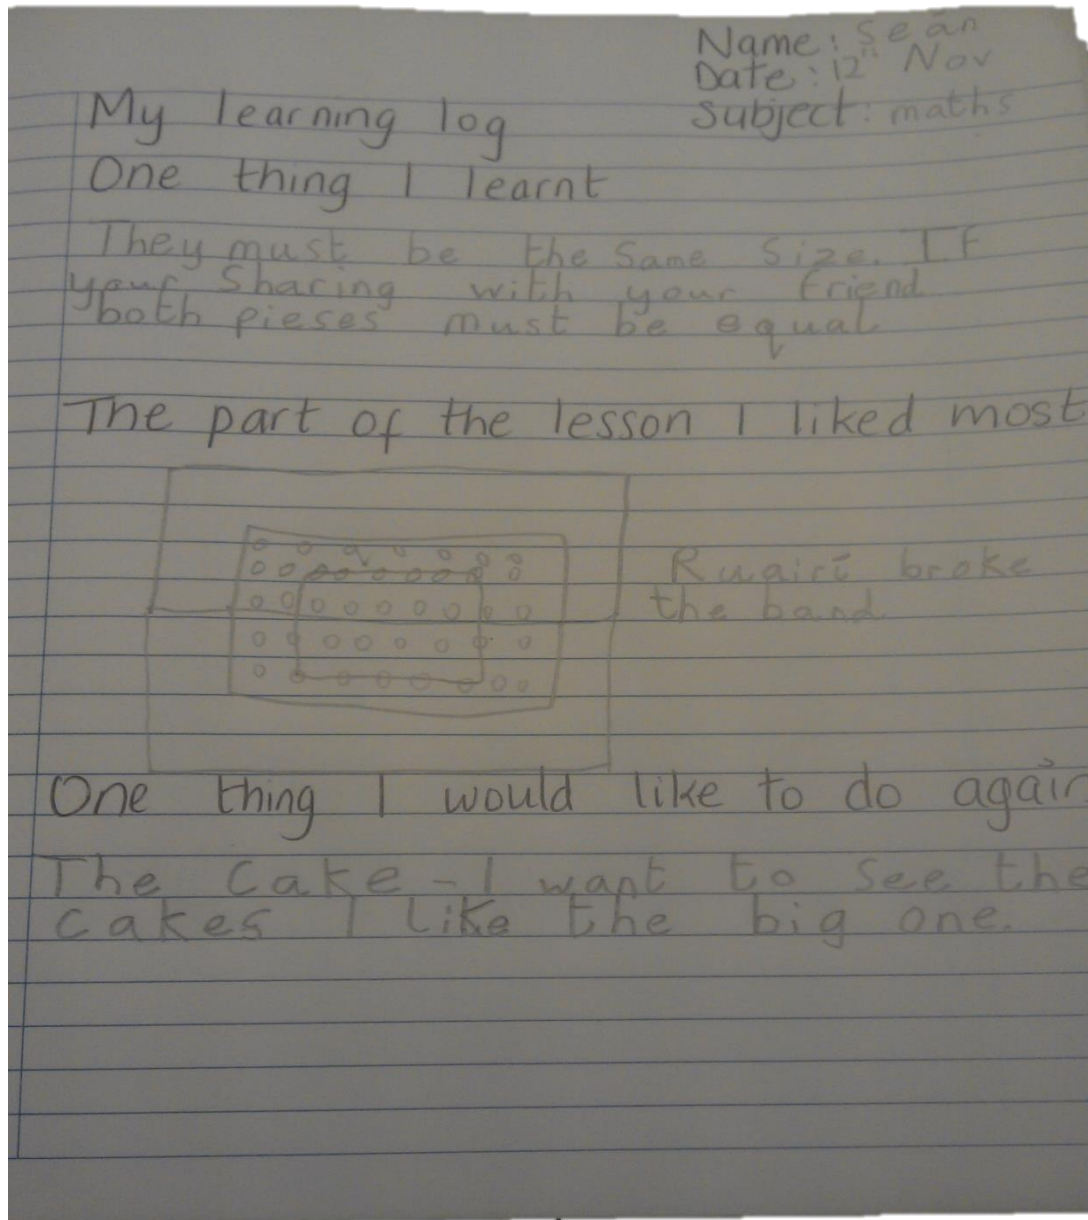 Name: Seán
Date: 12th Nov
Subject: maths
My learning log
One thing I learnt
They must be the same size. If
your Sharing with your friend
both pieses must be equal
The part of the lesson I liked most
Ruairí broke
the band
One thing I would like to do again
The Cake - I want to see the
cakes I like the big one.